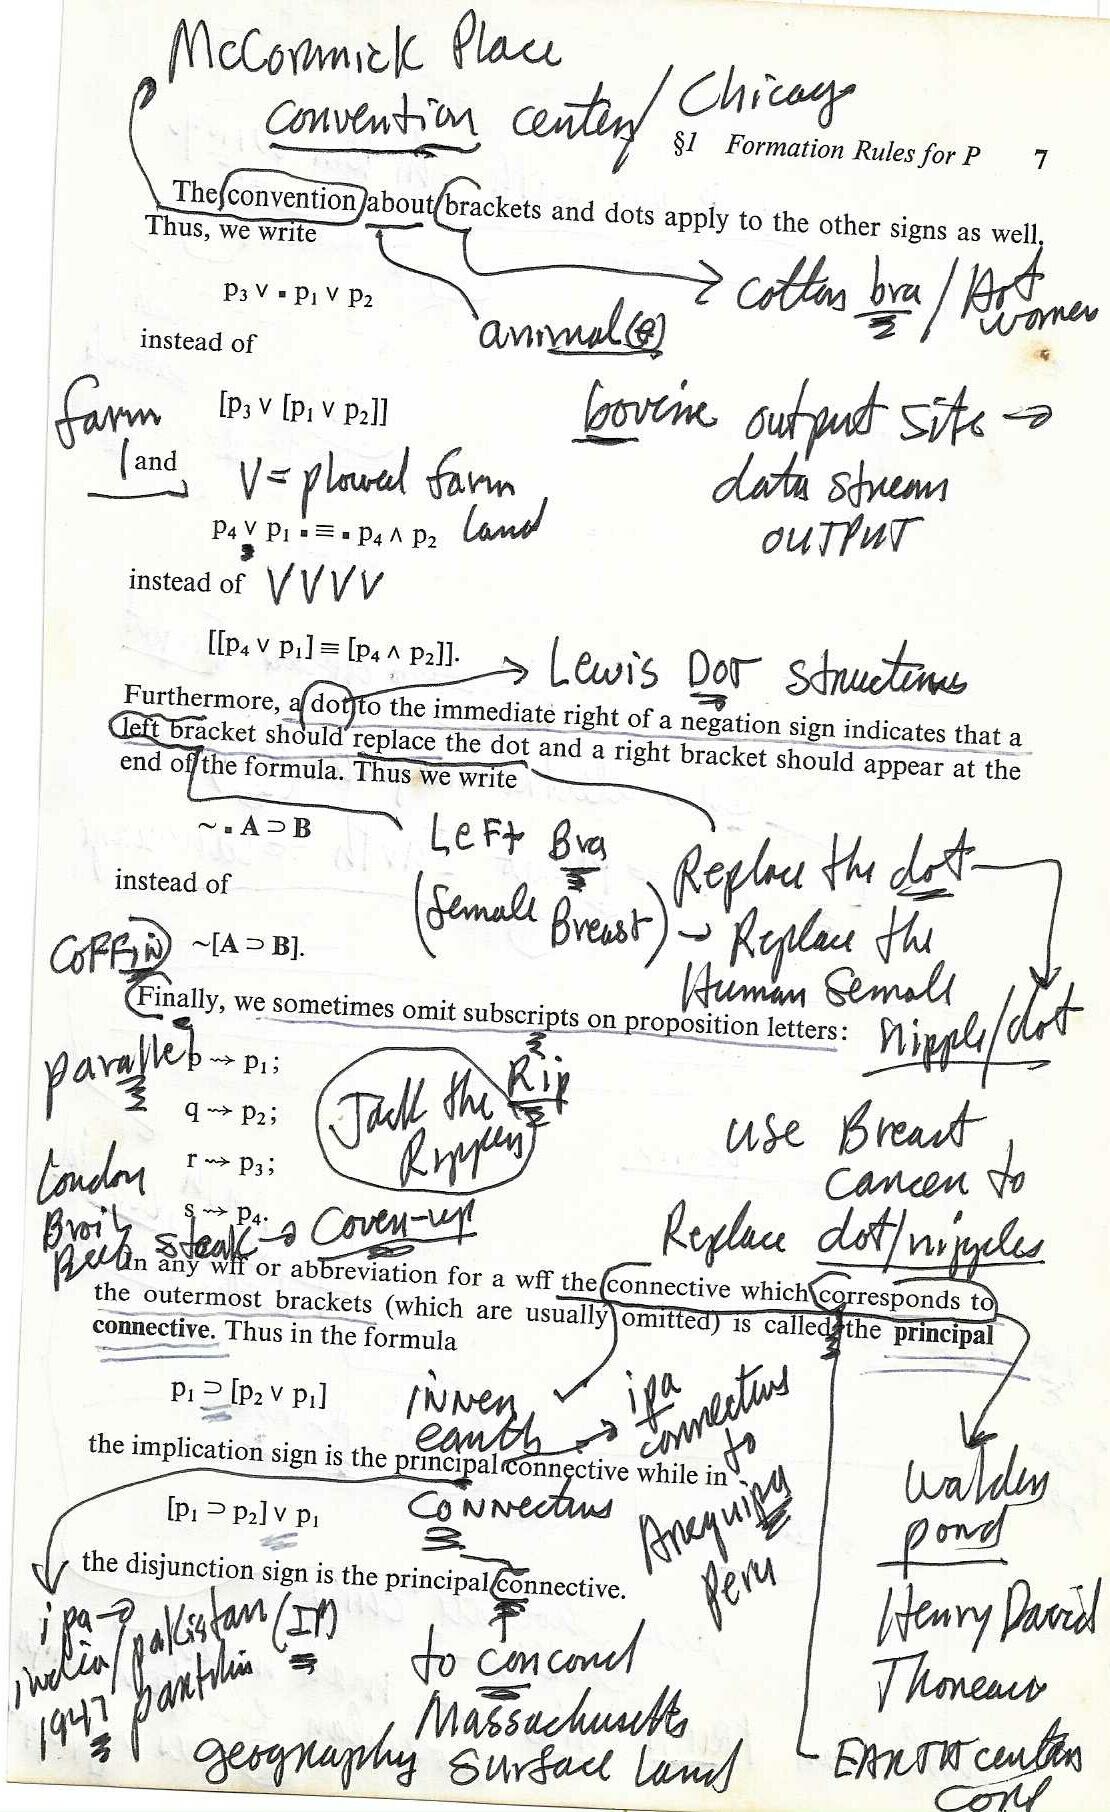 McCormick Place
convention center / Chicago
§1 Formation Rules for P 7
The convention about brackets and dots apply to the other signs as well.
Thus, we write
p₃ ∨ ▪ p₁ ∨ p₂
cotton bra / Hot
women
animal(s)
instead of
[p₃ ∨ [p₁ ∨ p₂]]
farm
land
bovine output site →
data stream
OUTPUT
V = plowed farm
land
p₄ ∨ p₁ ▪ ≡ ▪ p₄ ∧ p₂
instead of VVVV
[[p₄ ∨ p₁] ≡ [p₄ ∧ p₂]].
Lewis Dot structures
Furthermore, a dot to the immediate right of a negation sign indicates that a
left bracket should replace the dot and a right bracket should appear at the
end of the formula. Thus we write
~ ▪ A ⊃ B
Left Bra
(female
Breast)
Replace the dot
→ Replace the
Human female
nipple/dot
instead of
COFFIN
~[A ⊃ B].
Finally, we sometimes omit subscripts on proposition letters:
parallel
p ⇝ p₁;
q ⇝ p₂;
r ⇝ p₃;
s ⇝ p₄.
Jack the Rip
Ripper
use Breast
cancer to
Replace dot/nipples
London
Broil
Beef steak → Cover-up
In any wff or abbreviation for a wff the connective which corresponds to
the outermost brackets (which are usually omitted) is called the principal
connective. Thus in the formula
p₁ ⊃ [p₂ ∨ p₁]
inner
earth
ipa
connectus
to
Arequipa
Peru
the implication sign is the principal connective while in
connectus
[p₁ ⊃ p₂] ∨ p₁
the disjunction sign is the principal connective.
Walden
pond
Henry David
Thoreau
ipa →
india/pakistan (IP)
1947 partition
to concord
Massachusetts
geography surface land
EARTH center
core